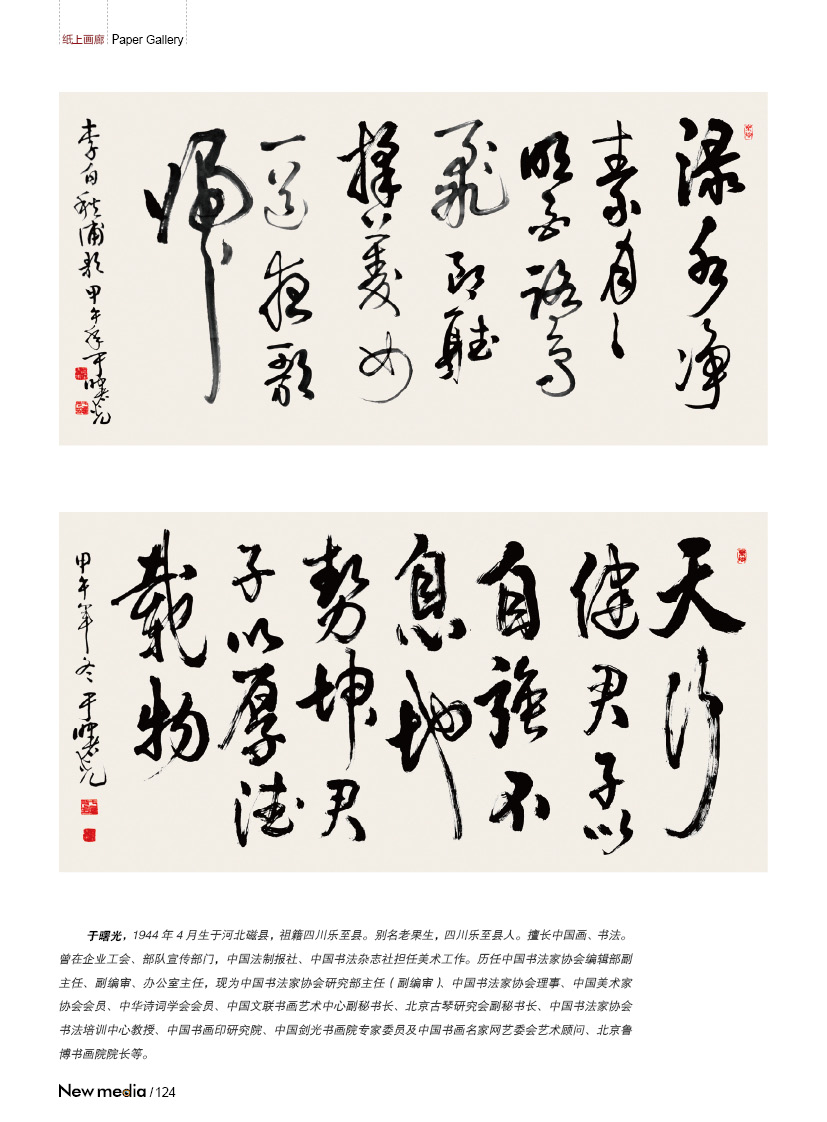 纸上画廊 Paper Gallery
渌水淨
素月〻
明白鷺
飛郎聽
採菱女
一道夜歌
歸
李白秋浦歌 甲午年于曙光
天行
健君子以
自強不
息地
勢坤君
子以厚德
載物
甲午年冬于曙光
于曙光，1944 年 4 月生于河北磁县，祖籍四川乐至县。别名老果生，四川乐至县人。擅长中国画、书法。
曾在企业工会、部队宣传部门，中国法制报社、中国书法杂志社担任美术工作。历任中国书法家协会编辑部副
主任、副编审、办公室主任，现为中国书法家协会研究部主任（副编审）、中国书法家协会理事、中国美术家
协会会员、中华诗词学会会员、中国文联书画艺术中心副秘书长、北京古琴研究会副秘书长、中国书法家协会
书法培训中心教授、中国书画印研究院、中国剑光书画院专家委员及中国书画名家网艺委会艺术顾问、北京鲁
博书画院院长等。
New media / 124